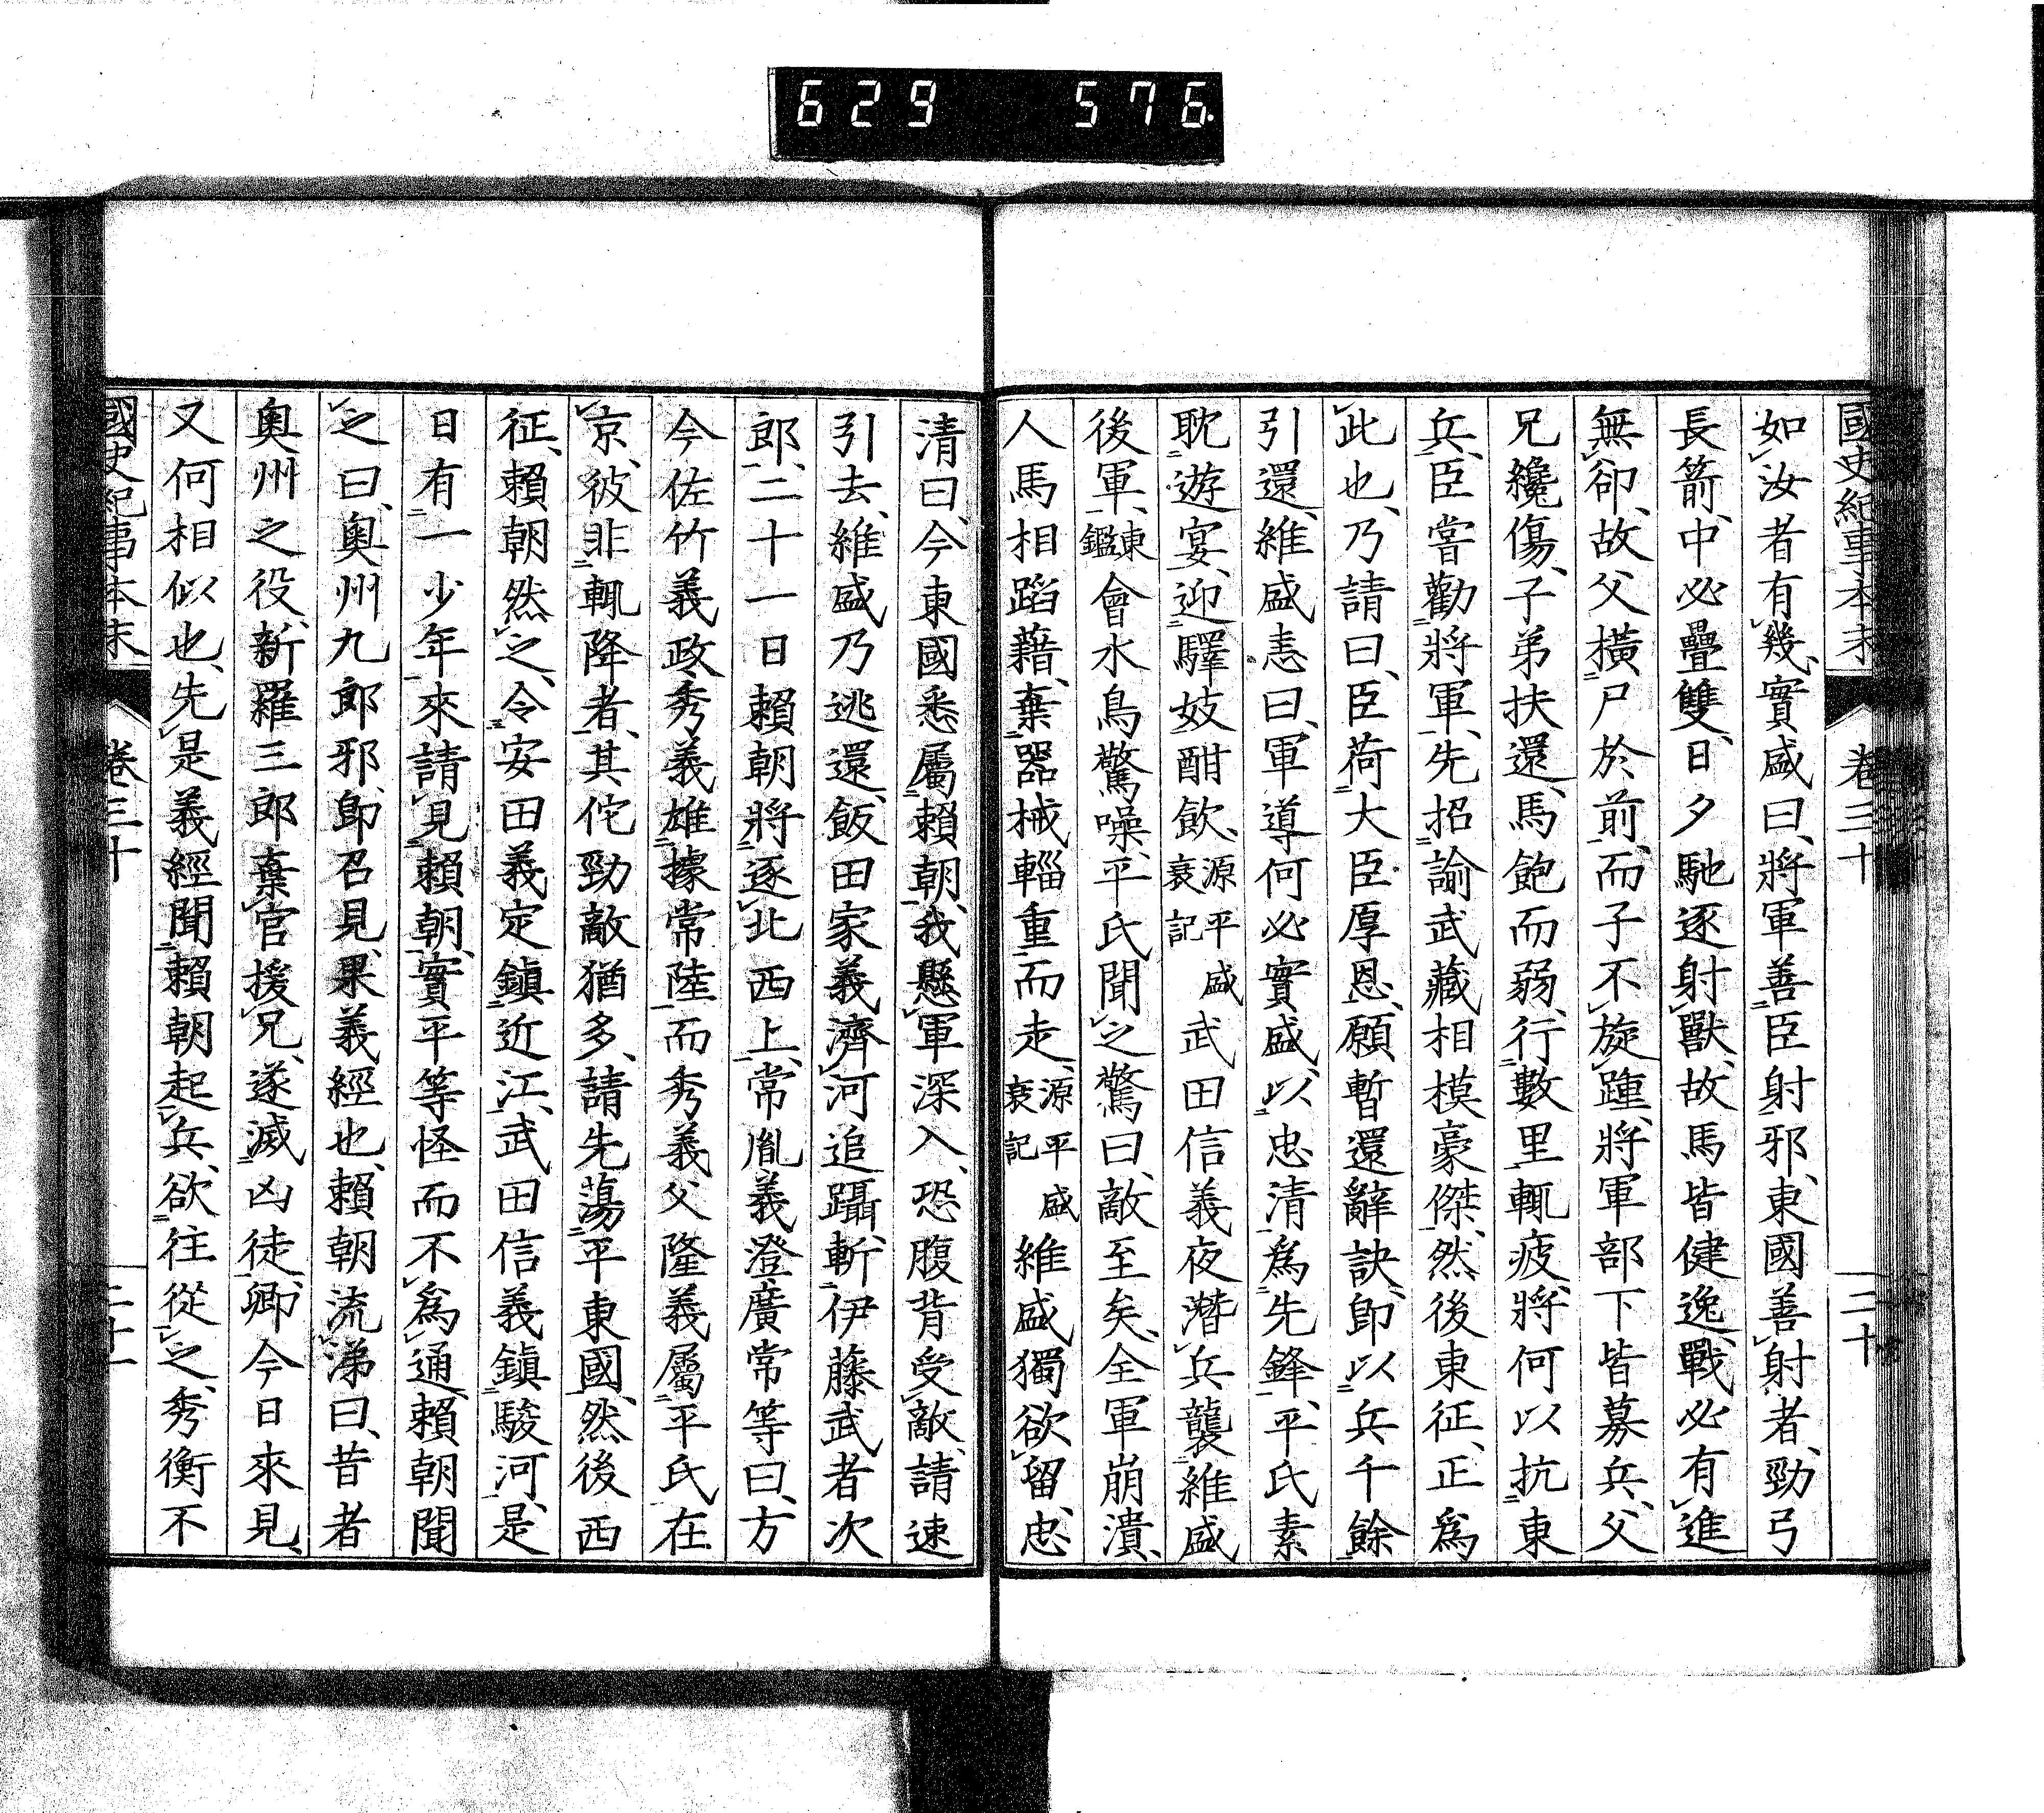 629 576
國史紀事本末 卷三十 三十
如汝者有幾、實盛曰、將軍善臣射邪、東國善射者、勁弓
長箭、中必疊雙、日夕馳逐射獸、故馬皆健逸、戰必有進
無卻、故父橫尸於前、而子不旋踵、將軍部下皆募兵、父
兄纔傷、子弟扶還、馬飽而弱、行數里輒疲、將何以抗東
兵、臣嘗勸將軍、先招諭武藏相模豪傑、然後東征、正爲
此也、乃請曰、臣荷大臣厚恩、願暫還辭訣、卽以兵千餘
引還、維盛恚曰、軍導何必實盛、以忠清爲先鋒、平氏素
耽遊宴、迎驛妓酣飲、源平盛衰記武田信義夜潛兵襲維盛
後軍、東鑑會水鳥驚噪、平氏聞之驚曰、敵至矣、全軍崩潰、
人馬相蹈藉、棄器械輜重而走、源平盛衰記維盛獨欲留、忠
清曰、今東國悉屬賴朝、我懸軍深入、恐腹背受敵、請速
引去、維盛乃逃還、飯田家義濟河追躡、斬伊藤武者次
郎、二十一日賴朝將逐北西上、常胤義澄廣常等曰、方
今佐竹義政秀義雄據常陸、而秀義父隆義屬平氏在
京、彼非輒降者、其佗勁敵猶多、請先蕩平東國、然後西
征、賴朝然之、令安田義定鎭近江、武田信義鎭駿河、是
日有一少年來請見賴朝、實平等怪而不爲通、賴朝聞
之曰、奧州九郎邪、卽召見、果義經也、賴朝流涕曰、昔者
奧州之役、新羅三郎棄官援兄、遂滅凶徒、卿今日來見、
又何相似也、先是義經聞賴朝起兵、欲往從之、秀衡不
國史紀事本末 卷三十